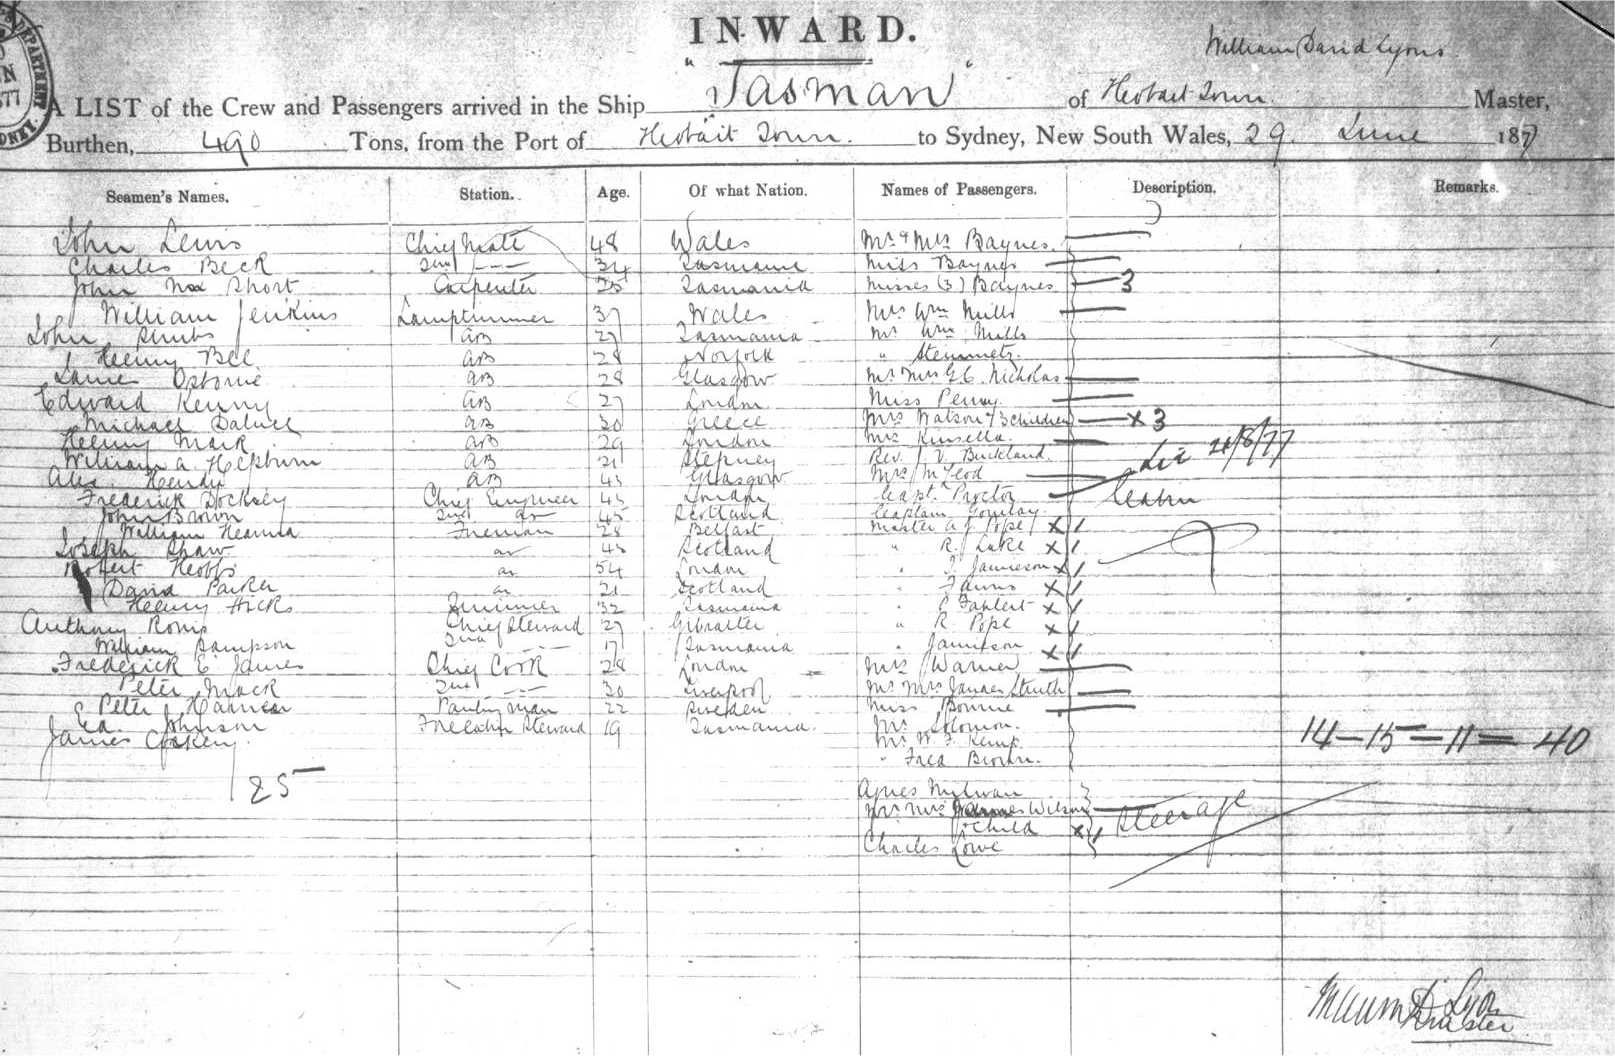 INWARD.
William David Lyons
A LIST of the Crew and Passengers arrived in the Ship "Tasman" of Hobart Town Master,
Burthen, 490 Tons, from the Port of Hobart Town. to Sydney, New South Wales, 29. June 1877
Seamen's Names. Station. Age. Of what Nation. Names of Passengers. Description. Remarks.
John Lewis Chief Mate 48 Wales Mr & Mrs Baynes.
Charles Beck 2nd 34 Tasmania Miss Baynes
John Short Carpenter 25 Tasmania Misses (3) Baynes 3
William Jenkins Lamptrimmer 37 Wales Mrs Wm Mills
John Stubs AB 27 Tasmania Mr Wm Mills
Henry Bee AB 28 Norfolk "
James Osborne AB 28 Glasgow Mr Mrs G C. Nicholas
Edward Kenny AB 27 London Miss Penny
Michael AB 30 Greece Mrs Watson & 3 children x 3
Henry Mark AB 29 London Mrs Kinsella
William A. Hepburn AB 21 Stepney Rev. J. V. Buckland.
Alex. AB 43 Glasgow Mrs McLeod 21/8/77
Frederick Chief Engineer 45 London Capt. Proctor Cabin
John Brown 2nd do 45 Scotland Captain Gourlay
William Fireman 28 Belfast Master A. J. Pope x 1
Joseph Shaw do 43 Scotland " R. Luke x 1
Robert Hobbs do 54 London " J. Jamieson x 1
David Parker do 21 Scotland " x 1
Henry Hicks Trimmer 32 Tasmania " x 1
Anthony Chief Steward 27 Gibralter " R. Pope x 1
William Sampson 2nd 17 Tasmania " Jamieson x 1
Frederick E. James Chief Cook 28 London Mrs Warner
Peter Mack 2nd 30 Liverpool Mr Mrs James Struth
Peter Pantryman 22 Sweden Miss Bourne
Ed. Johnson Forecabin Steward 19 Tasmania. Mr Solomon.
James Mr W. F. Kemp.
" Fred Brown.
14-15-11= 40
25
Agnes
Mr Mrs James Wilson
& Child x 1 Steerage
Charles Lowe
William D Lyons
Master